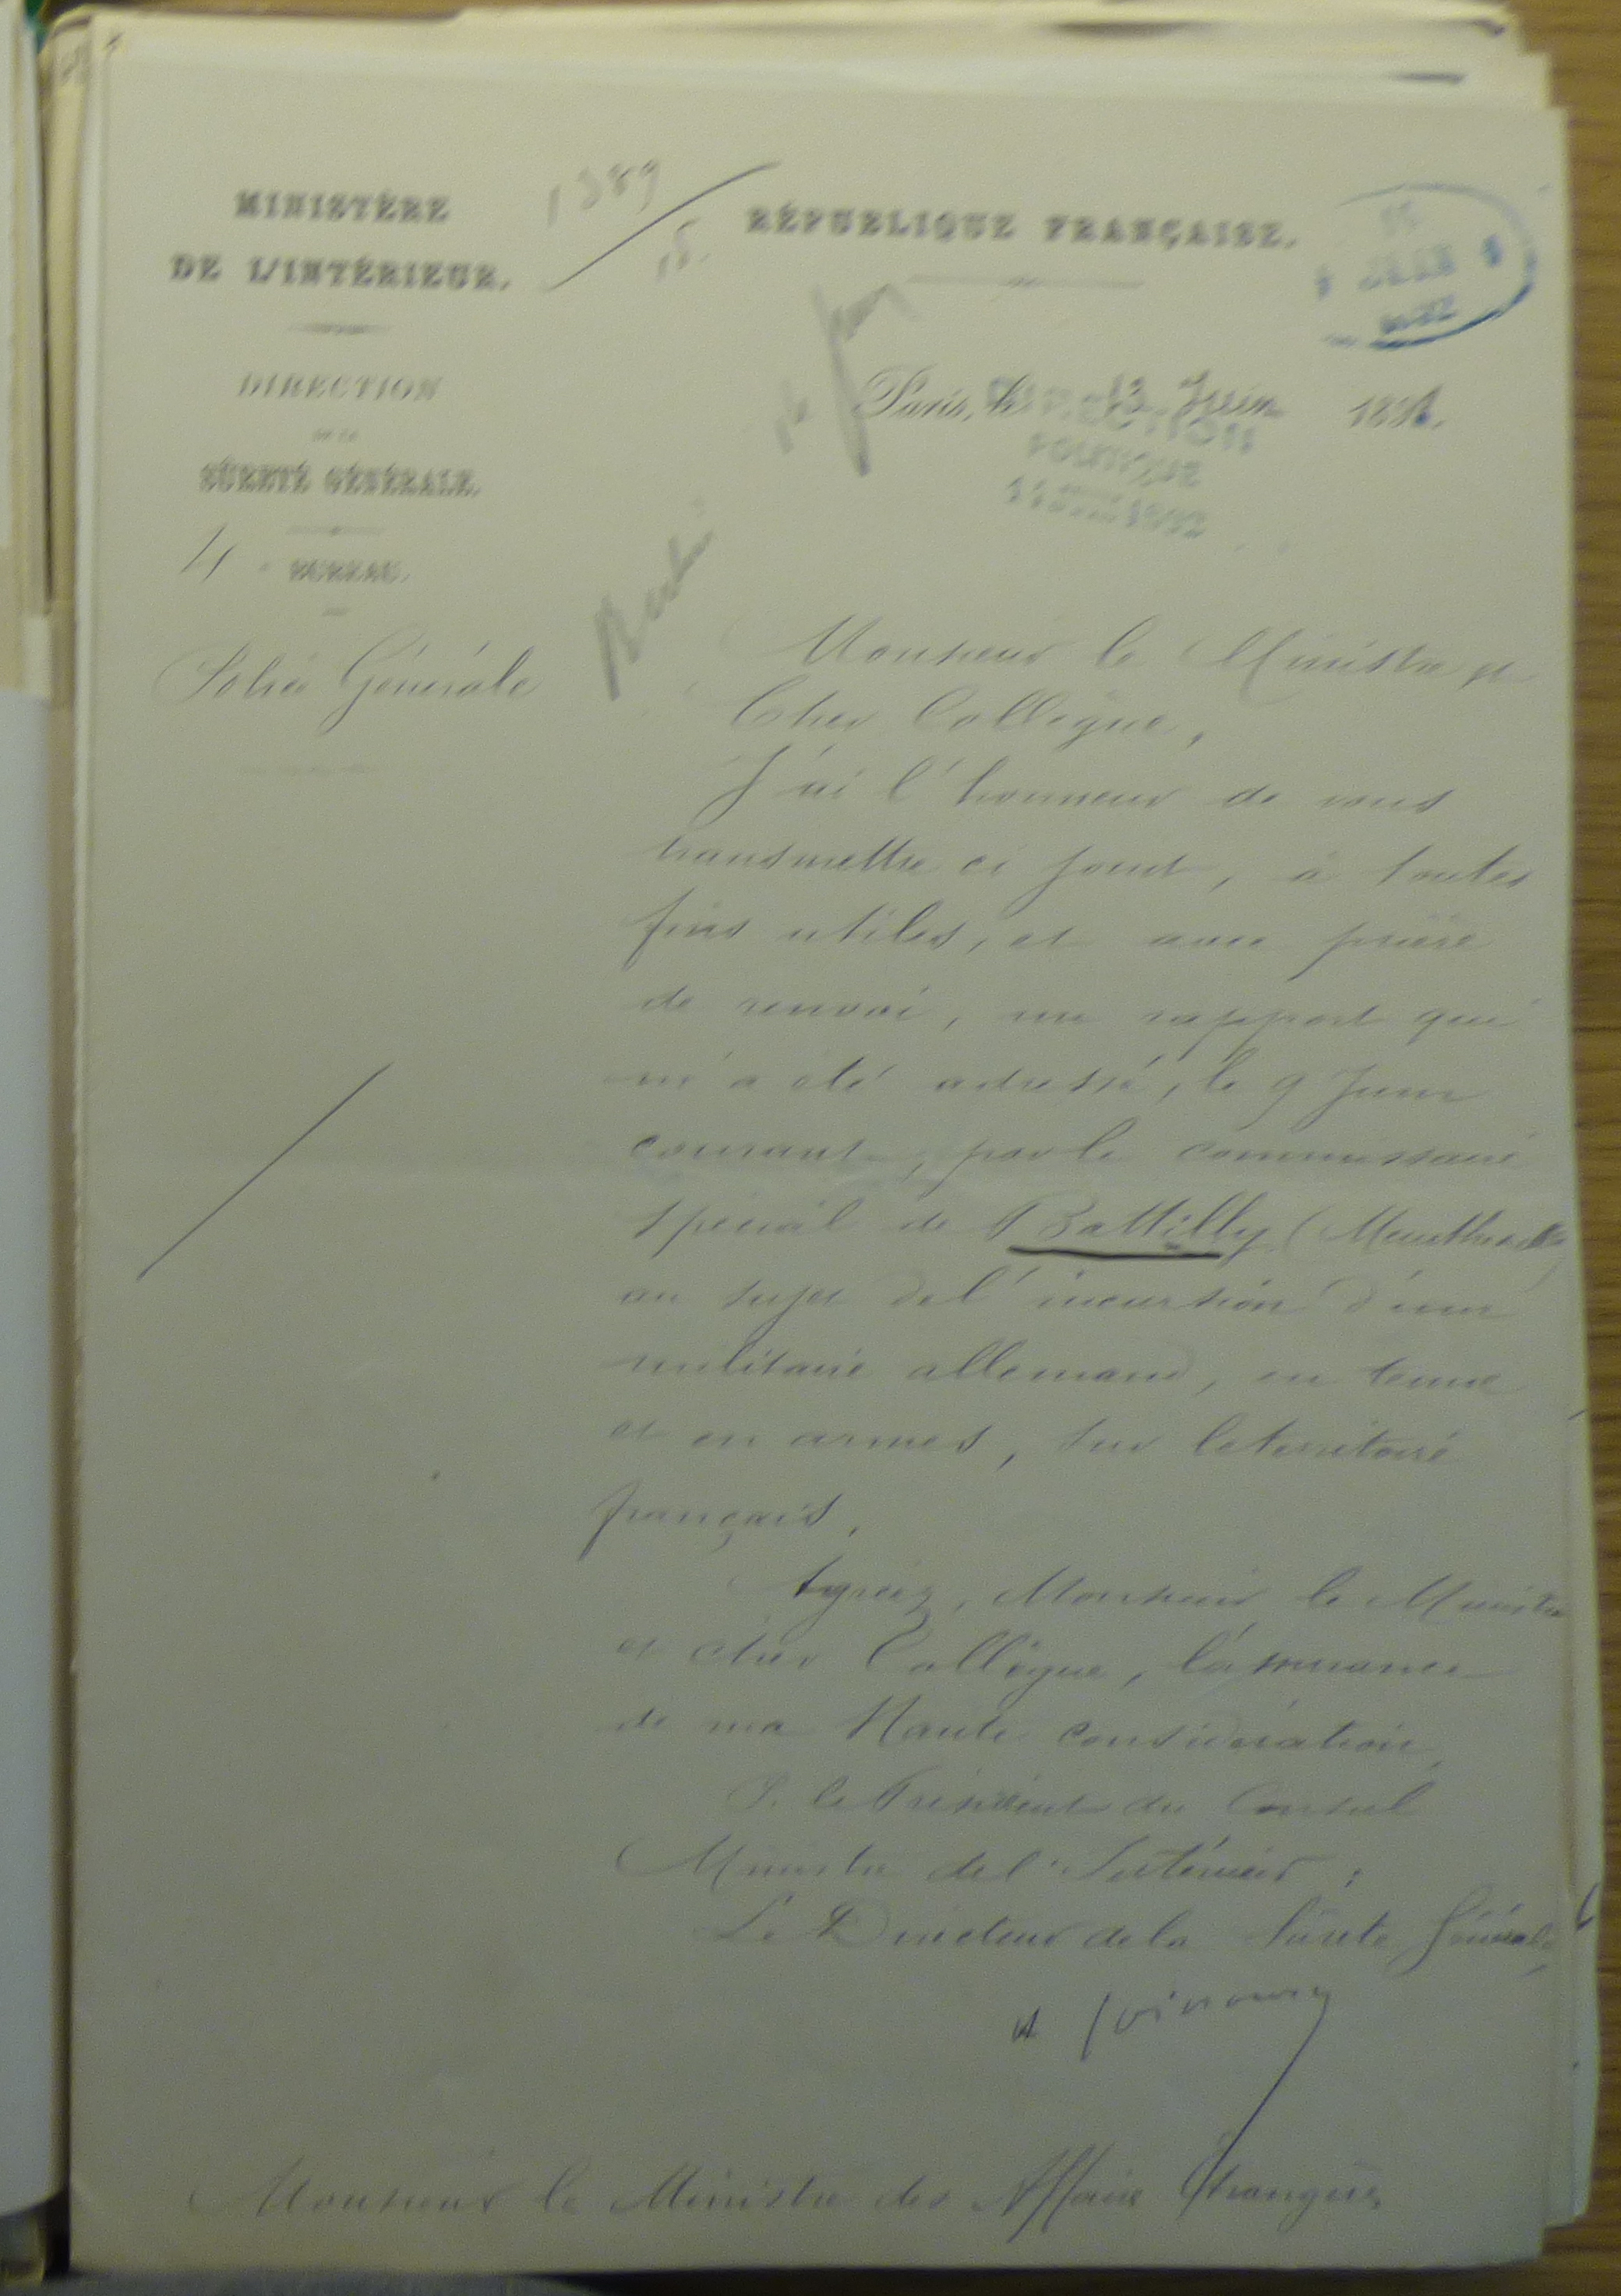 MINISTÈRE
DE L'INTÉRIEUR.
DIRECTION
DE LA
SÛRETÉ GÉNÉRALE.
4 BUREAU.
Police Générale
1389
15.
RÉPUBLIQUE FRANÇAISE.
Paris, le 13 Juin 189
DIRECTION
POLITIQUE
1892
Berlin
Monsieur le Ministre et
Cher Collègue,
J'ai l'honneur de vous
transmettre ci joint, à toutes
fins utiles, et avec prière
de renvoi, un rapport qui
m'a été adressé, le 9 Juin
courant, par le commissaire
spécial de Battilly (Meurthe et
au sujet de l'incursion d'un
militaire allemand, en tenue
et en armes, sur le territoire
français.
Agréez, Monsieur le Ministre
et cher Collègue, l'assurance
de ma Haute considération,
P. le Président du Conseil
Ministre de l'Intérieur :
Le Directeur de la Sûreté Générale,
Monsieur le Ministre des Affaires Etrangères